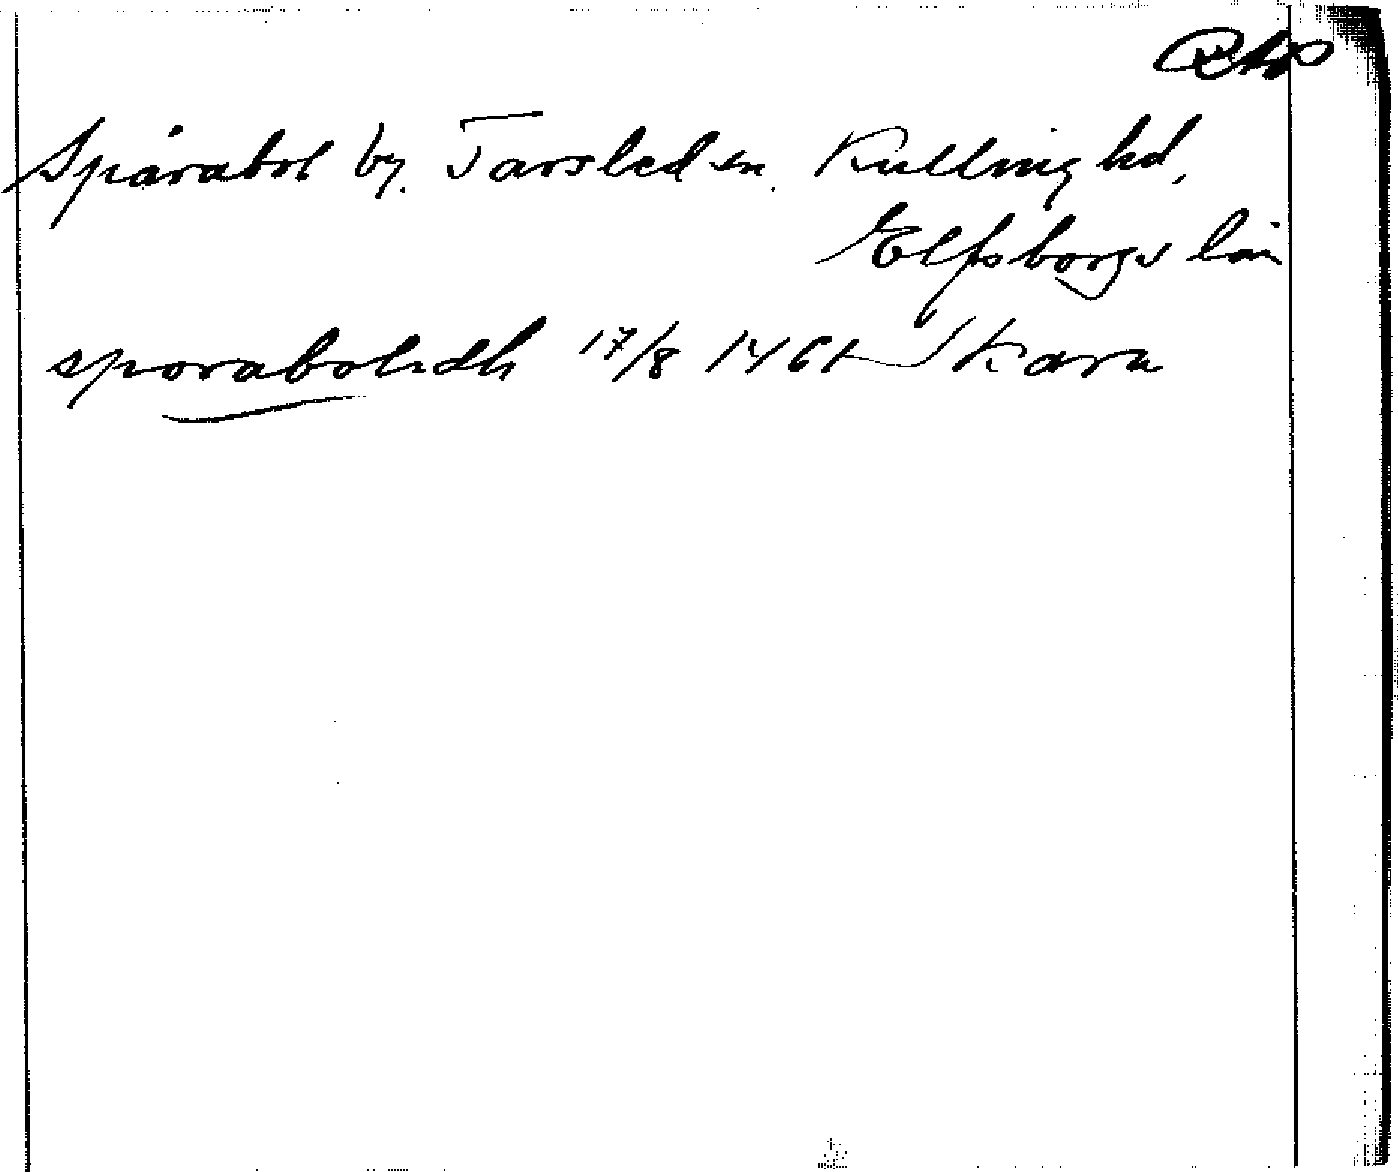 RAP
Spårabol by. Tarsled sn. Kulling hd,
Elfsborgs län
sporabohdh 17/8 1461 Skara